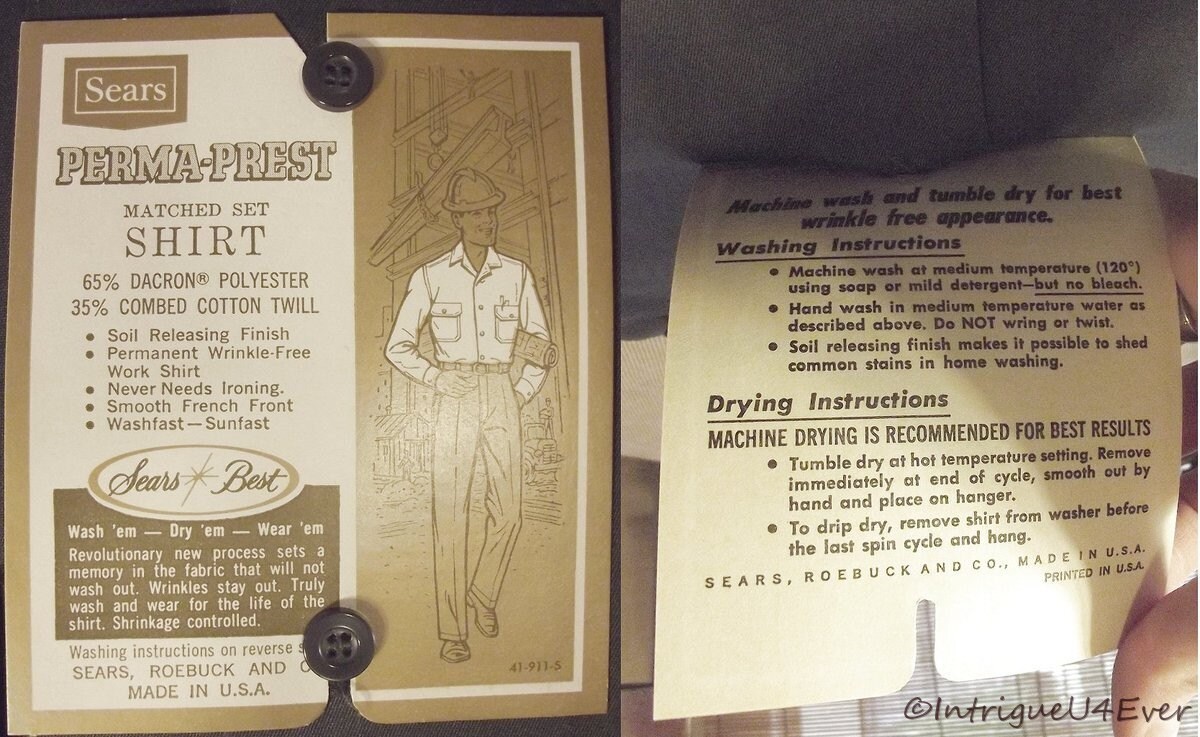 Sears
PERMA-PREST
MATCHED SET
SHIRT
65% DACRON® POLYESTER
35% COMBED COTTON TWILL
• Soil Releasing Finish
• Permanent Wrinkle-Free
Work Shirt
• Never Needs Ironing.
• Smooth French Front
• Washfast—Sunfast
Sears Best
Wash 'em — Dry 'em — Wear 'em
Revolutionary new process sets a
memory in the fabric that will not
wash out. Wrinkles stay out. Truly
wash and wear for the life of the
shirt. Shrinkage controlled.
Washing instructions on reverse s
SEARS, ROEBUCK AND C
MADE IN U.S.A.
41-911-S
Machine wash and tumble dry for best
wrinkle free appearance.
Washing Instructions
• Machine wash at medium temperature (120°)
using soap or mild detergent—but no bleach.
• Hand wash in medium temperature water as
described above. Do NOT wring or twist.
• Soil releasing finish makes it possible to shed
common stains in home washing.
Drying Instructions
MACHINE DRYING IS RECOMMENDED FOR BEST RESULTS
• Tumble dry at hot temperature setting. Remove
immediately at end of cycle, smooth out by
hand and place on hanger.
• To drip dry, remove shirt from washer before
the last spin cycle and hang.
SEARS, ROEBUCK AND CO., MADE IN U.S.A.
PRINTED IN U.S.A.
©IntrigueU4Ever